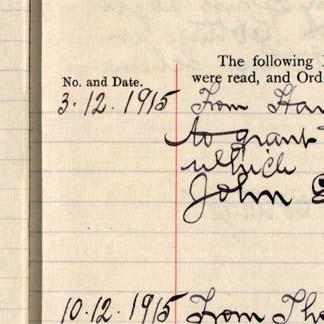 The following
No. and Date.
were read, and Ord
3.12.1915 From Har
to grant
which
John
10.12.1915 From Tho